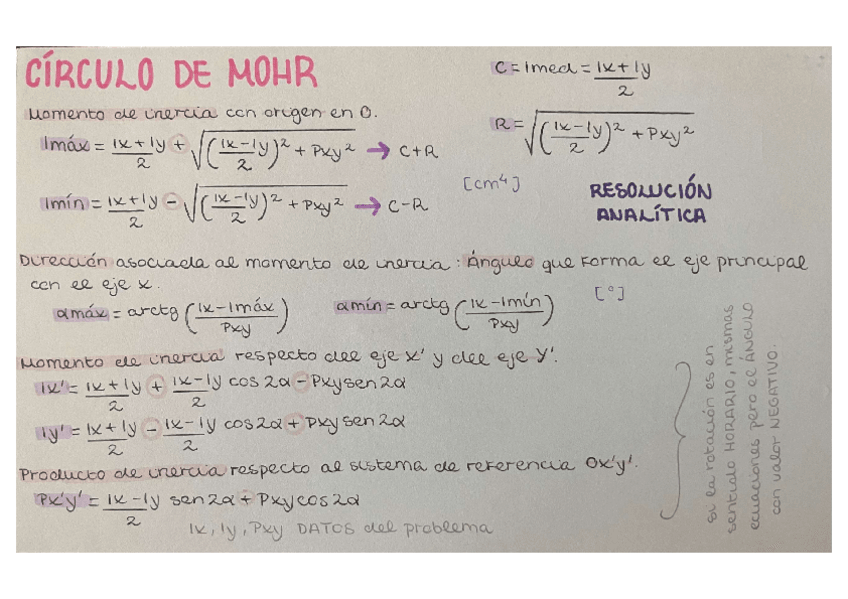 CÍRCULO DE MOHR
Momento de inercia con origen en O.
Imáx = Ix+Iy/2 + √((Ix-Iy/2)² + Pxy²) → C+R
Imín = Ix+Iy/2 - √((Ix-Iy/2)² + Pxy²) → C-R
C = Imed = Ix+Iy/2
R = √((Ix-Iy/2)² + Pxy²)
[cm⁴]
RESOLUCIÓN
ANALÍTICA
Dirección asociada al momento de inercia: Ángulo que forma el eje principal
con el eje x.
[°]
αmáx = arctg (Ix-Imáx/Pxy)
αmín = arctg (Ix-Imín/Pxy)
Momento de inercia respecto del eje X' y del eje Y'.
Ix' = Ix+Iy/2 + Ix-Iy/2 cos 2α - Pxy sen 2α
Iy' = Ix+Iy/2 - Ix-Iy/2 cos 2α + Pxy sen 2α
Producto de inercia respecto al sistema de referencia Ox'y'.
Px'y' = Ix-Iy/2 sen 2α + Pxy cos 2α
Ix, Iy, Pxy DATOS del problema
si la rotación es en
sentido HORARIO, mismas
ecuaciones pero el ÁNGULO
con valor NEGATIVO.